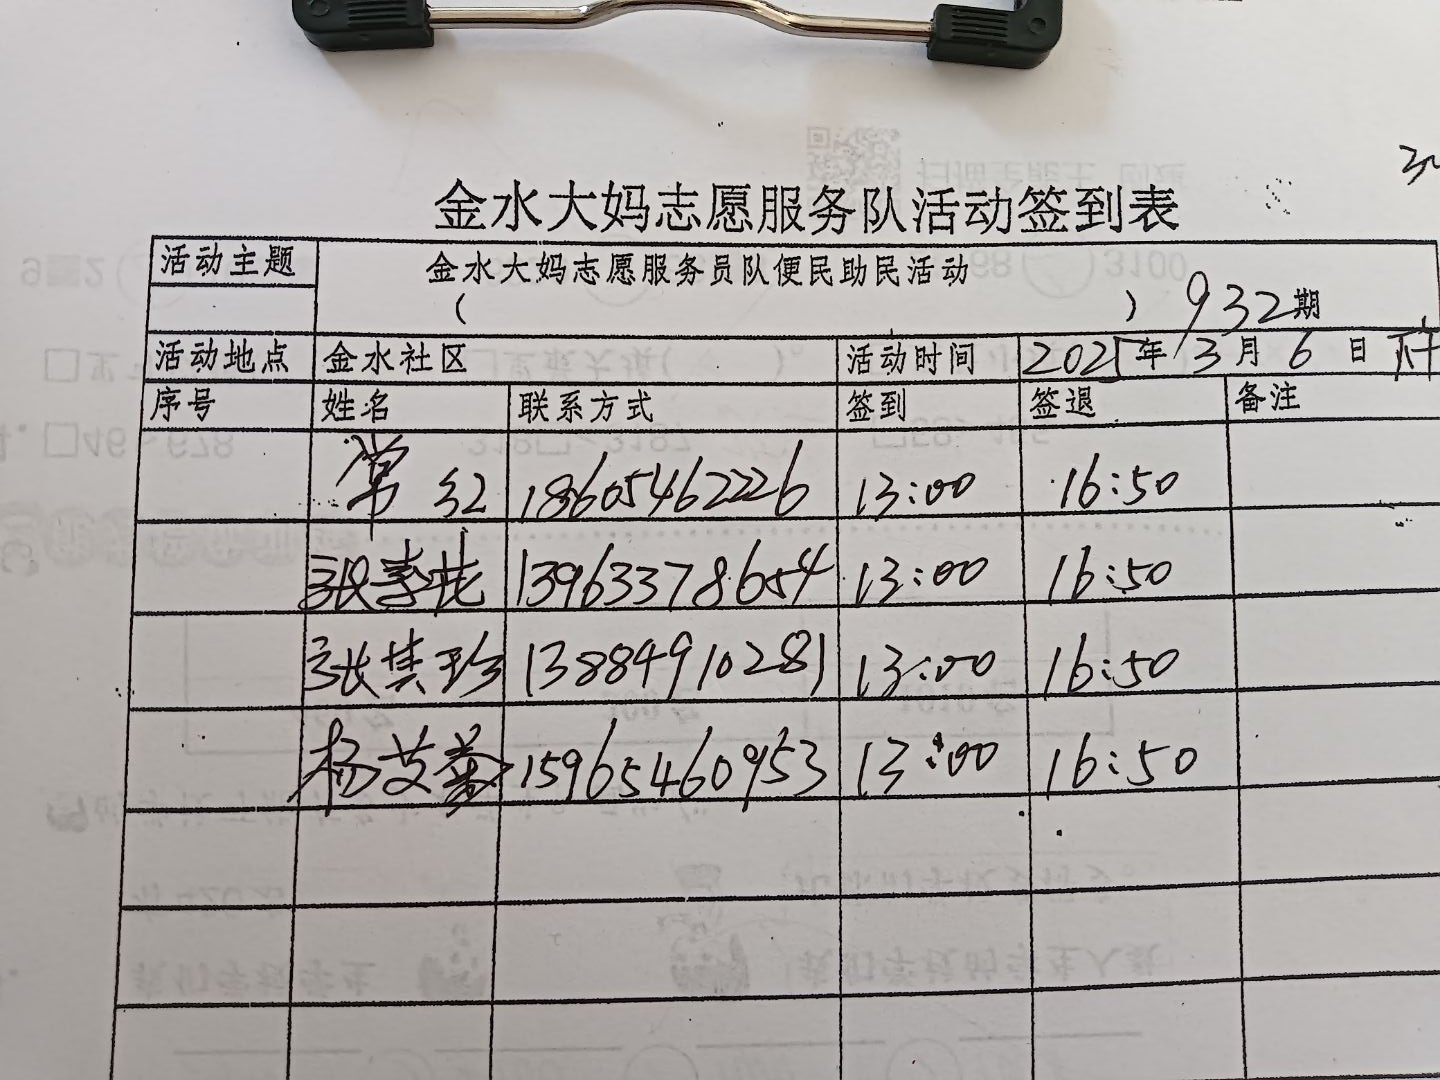 金水大妈志愿服务队活动签到表
活动主题 金水大妈志愿服务员队便民助民活动
( ) 932期
活动地点 金水社区 活动时间 2025年3月6日
序号 姓名 联系方式 签到 签退 备注
常红 18605462226 13:00 16:50
张春花 13963378654 13:00 16:50
张其珍 13884910281 13:00 16:50
杨艾荣 15965460953 13:00 16:50